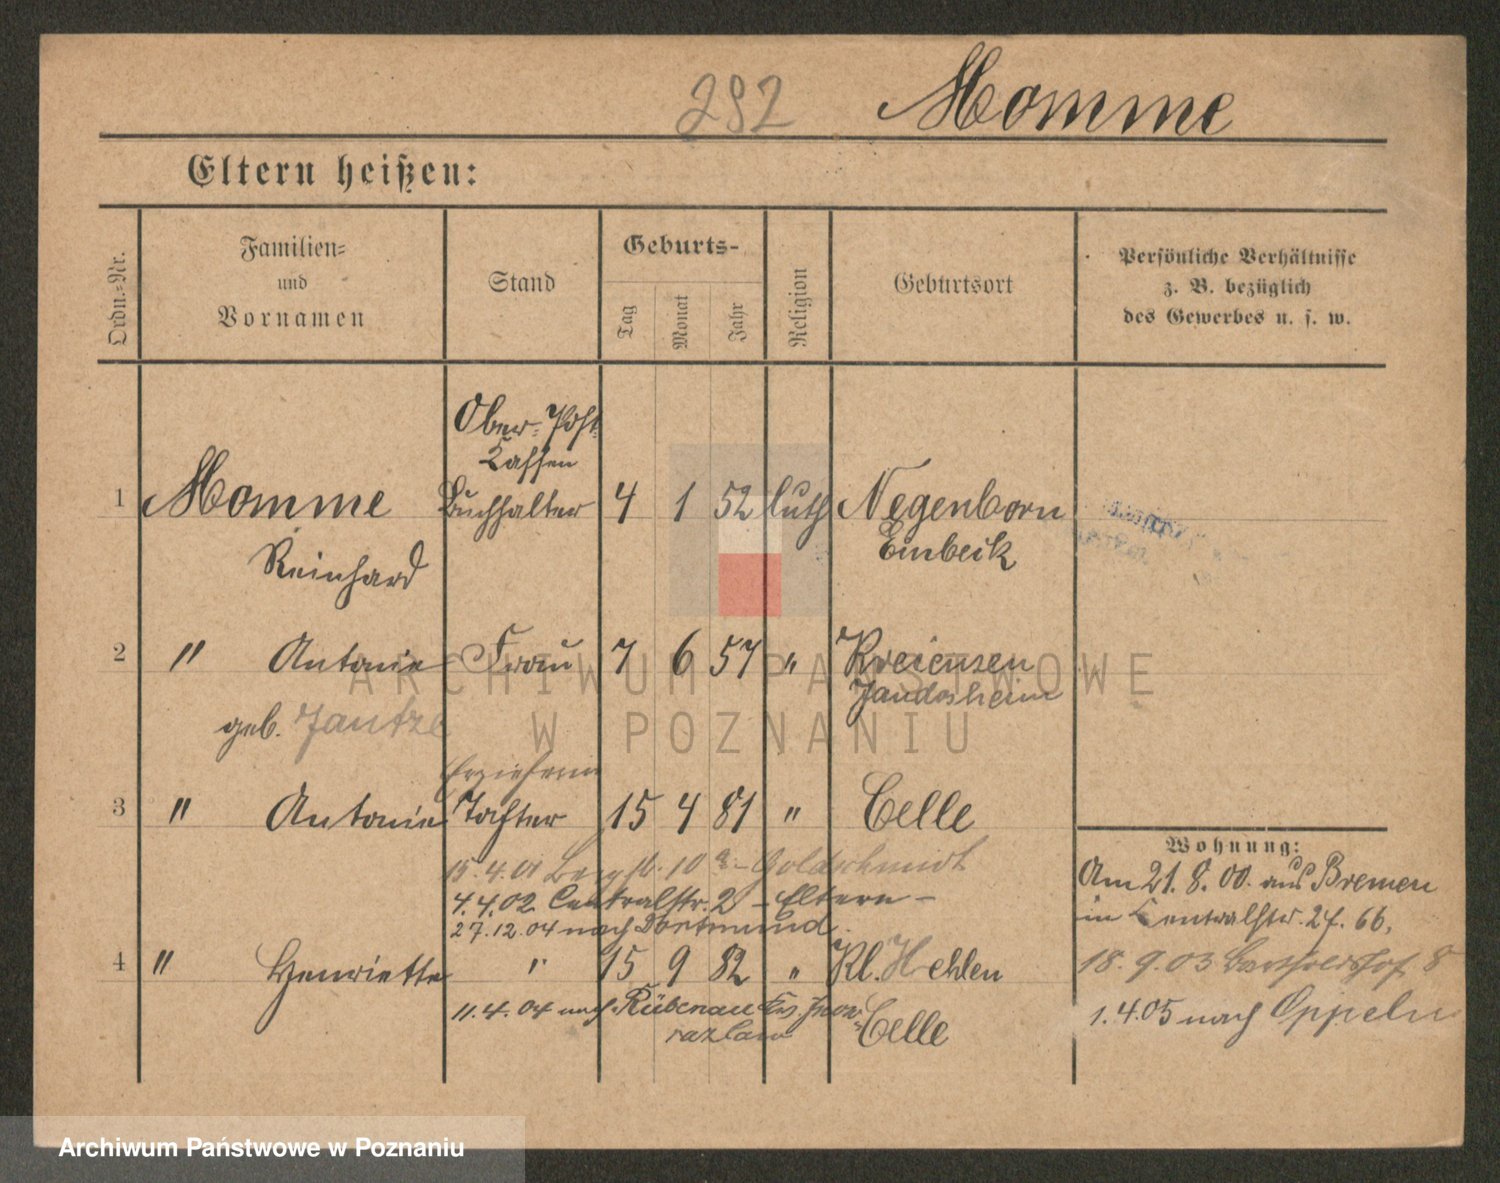 282 Momme
Eltern heißen:
Ordn.-Nr.
Familien-
und
Vornamen
Stand
Geburts-
Tag
Monat
Jahr
Religion
Geburtsort
Persönliche Verhältnisse
z. B. bezüglich
des Gewerbes u. s. w.
Ober-Post-
Kassen
1 Momme Buchhalter 4 1 52 luth Negenborn
Reinhard Einbeck
2 " Antonie Frau 7 6 57 " Kreiensen
geb. Gandesheim
Erzieherin
3 " Antonie Tochter 15 4 81 " Celle
15.4.01 Bergstr. 10 Goldschmidt
4.4.02 Centralstr. 2 - Eltern -
27.12.04 nach Dortmund.
4 " Henriette " 15 9 82 " Kl. Hehlen
11.4.04 nach Rübenau Krs. Inow-
razlaw Celle
Wohnung:
Am 21.8.00. aus Bremen
in Centralstr. 27. 66.
18.9.03 Bartholdshof 8
1.4.05 nach Oppeln
ARCHIWUM PAŃSTWOWE
W POZNANIU
Archiwum Państwowe w Poznaniu